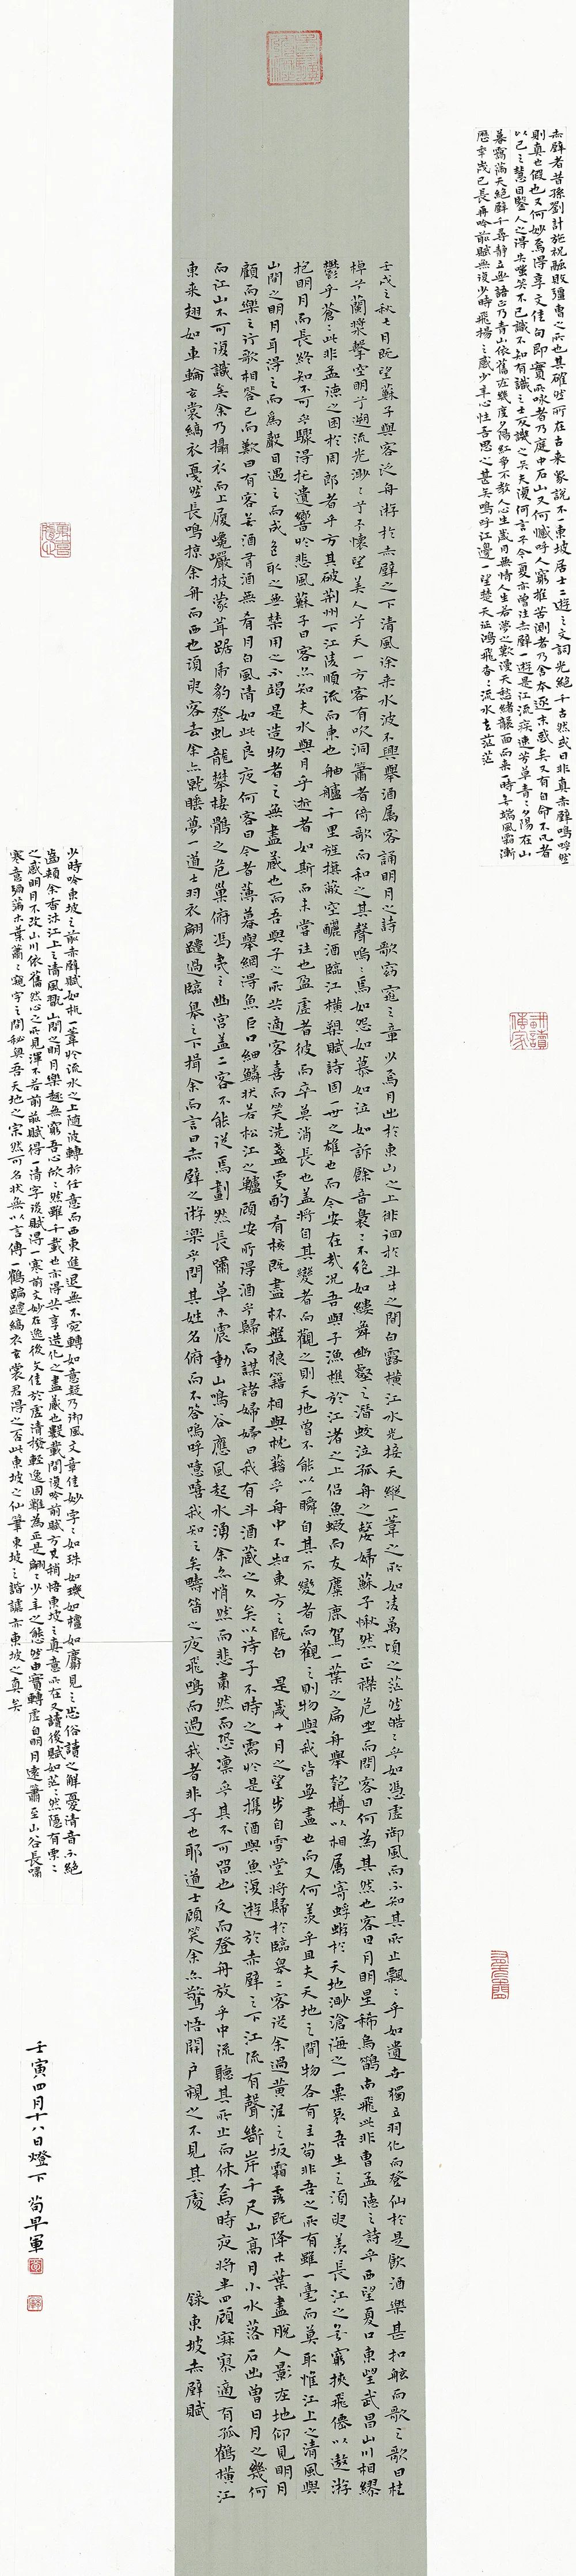 赤壁者昔孫劉計施祝融敗彊曹之所也其確然所在古來眾說不一東坡居士二遊之文詞光絕千古然或曰非真赤壁嗚呼然
則真也假也又何妙焉得享文佳句即實所咏者乃庭中石山又何憾呼人窮推苦測者乃舍本逐末惑矣又有自命不凡者
以己之慧目鑒人之得失嗤笑不已識不知有識之士反譏之矣夫復何言予今夏亦曾往赤壁一遊是江流疾速芳草青々夕陽在山
暮靄滿天絕壁千尋靜立無語正乃青山依舊在幾度夕陽紅爭不教人心生歲月無情人生若夢之歎漫天愁緒襲面而來一時無端風霜漸
歷年歲已長再吟前賦無復少時飛揚之感少年心性吾思之甚矣嗚呼江邊一望楚天遠鴻飛杳々流水去茫茫
壬戌之秋七月既望蘇子與客泛舟游於赤壁之下清風徐來水波不興舉酒屬客誦明月之詩歌窈窕之章少焉月出於東山之上徘徊於斗牛之間白露橫江水光接天縱一葦之所如凌萬頃之茫然皓々乎如馮虛御風而不知其所止飄々乎如遺世獨立羽化而登仙於是飲酒樂甚扣舷而歌之歌曰桂
棹兮蘭槳擊空明兮溯流光渺々兮予懷望美人兮天一方客有吹洞簫者倚歌而和之其聲嗚々焉如怨如慕如泣如訴餘音裊々不絕如縷舞幽壑之潛蛟泣孤舟之嫠婦蘇子愀然正襟危坐而問客曰何為其然也客曰月明星稀烏鵲南飛此非曹孟德之詩乎西望夏口東望武昌山川相繆
鬱乎蒼々此非孟德之困於周郎者乎方其破荊州下江陵順流而東也舳艫千里旌旗蔽空釃酒臨江橫槊賦詩固一世之雄也而今安在哉況吾與子漁樵於江渚之上侶魚蝦而友麋鹿駕一葉之扁舟舉匏樽以相屬寄蜉蝣於天地渺滄海之一粟哀吾生之須臾羨長江之無窮挾飛僊以遨游
抱明月而長終知不可乎驟得托遺響於悲風蘇子曰客亦知夫水與月乎逝者如斯而未嘗往也盈虛者彼而卒莫消長也盖將自其變者而觀之則天地曾不能以一瞬自其不變者而觀之則物與我皆無盡也而又何羨乎且夫天地之間物各有主苟非吾之所有雖一毫而莫取惟江上之清風與
山間之明月耳得之而為聲目遇之而成色取之無禁用之不竭是造物者之無盡藏也而吾與子之所共適客喜而笑洗盞更酌肴核既盡杯盤狼籍相與枕藉乎舟中不知東方之既白 是歲十月之望步自雪堂將歸於臨皋二客從余過黃泥之坂霜露既降木葉盡脫人影在地仰見明月
顧而樂之行歌相答已而歎曰有客無酒有酒無肴月白風清如此良夜何客曰今者薄暮舉網得魚巨口細鱗狀若松江之鱸顧安所得酒乎歸而謀諸婦婦曰我有斗酒藏之久矣以待子不時之需於是携酒與魚復遊於赤壁之下江流有聲斷岸千尺山高月小水落石出曾日月之幾何
而江山不可復識矣余乃攝衣而上履巉巖披蒙茸踞虎豹登虬龍攀棲鶻之危巢俯馮夷之幽宮盖二客不能從焉劃然長嘯草木震動山鳴谷應風起水湧余亦悄然而悲肅然而恐凜乎其不可留也反而登舟放乎中流聽其所止而休焉時夜將半四顧寂寥適有孤鶴橫江
東來翅如車輪玄裳縞衣戛然長鳴掠余舟而西也須臾客去余亦就睡夢一道士羽衣翩躚過臨皋之下揖余而言曰赤壁之游樂乎問其姓名俯而不答嗚呼噫嘻我知之矣疇昔之夜飛鳴而過我者非子也耶道士顧笑余亦驚悟開户視之不見其處 錄東坡赤壁賦
少時吟東坡之前赤壁賦如杭一葦於流水之上隨波轉折任意而西東進退無不宛轉如意疑乃御風文章佳妙字々如珠如璣如檀如麝見之忘俗讀之解憂清音不絕
齒頰余香沐江上之清風翫山間之明月樂趣無窮吾心欣々然雖千載也亦得共享造化之盡藏也數載間復吟前賦方見稍悟東坡之真意所在又讀後賦如茫々然隱有栗々
之感明月不改山川依舊然心之所見渾不若前前賦得一清字後賦得一寒前文妙在逸後文佳於虛清揚輕逸固難為正是翩々少年之態然由實轉虛自明月遠簫至山谷長嘯
寒意遍滿木葉蕭々窺字之間秘與吾天地之宗然可名狀無以言傳一鶴蹁躚縞衣玄裳君得之否此東坡之仙筆東坡之諧謔亦東坡之真矣
壬寅四月十八日燈下 荀早軍
耕讀傳家